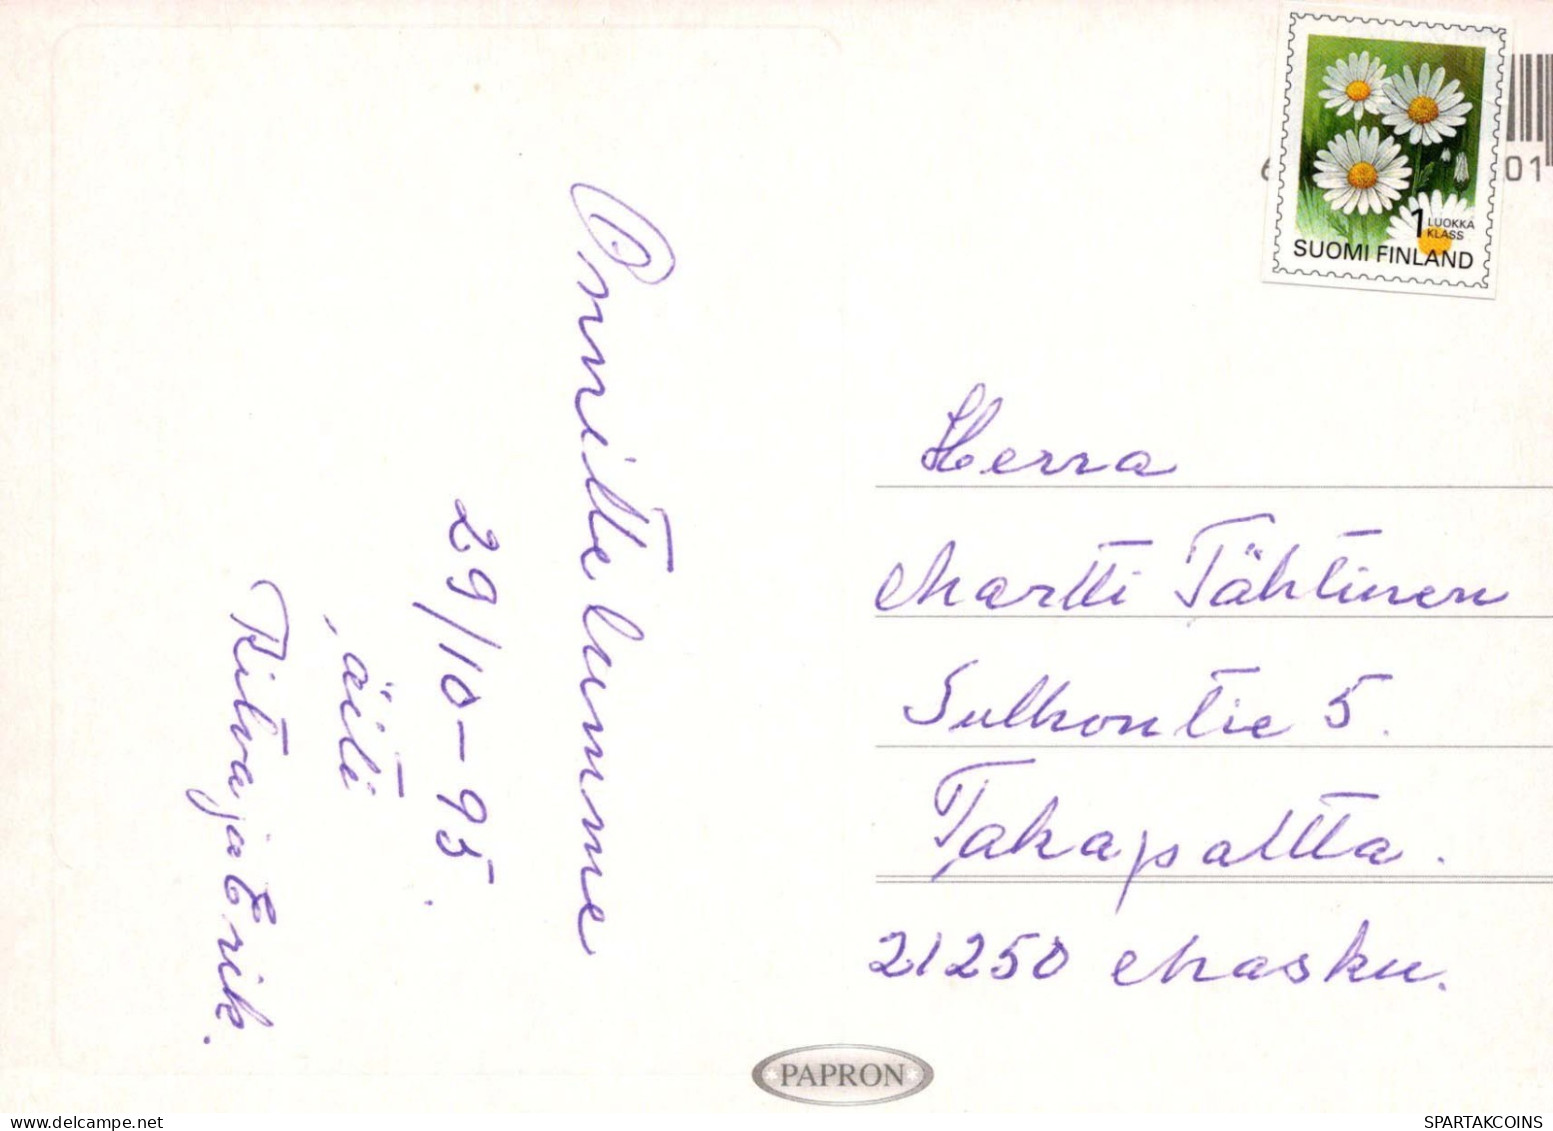 Onnittelumme
29/10-95.
äiti
Ritva ja Erik.
1 LUOKKA
KLASS
SUOMI FINLAND
01
Herra
Martti Tähtinen
Sulkontie 5.
Takapaltta.
21250 Masku.
PAPRON
SPARTAKCOINS